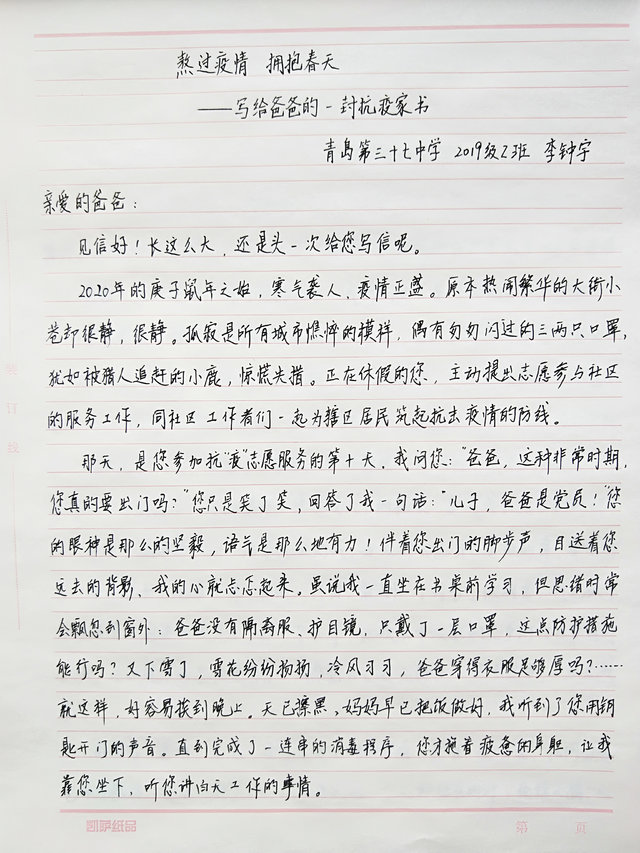 熬过疫情 拥抱春天
——写给爸爸的一封抗疫家书
青岛第三十七中学 2019级23班 李钟宇
亲爱的爸爸：
见信好！长这么大，还是头一次给您写信呢。
2020年的庚子鼠年之始，寒气袭人，疫情正盛。原本热闹繁华的大街小
巷却很静，很静。孤寂是所有城市憔悴的模样，偶有匆匆闪过的三两只口罩，
犹如被猎人追赶的小鹿，惊慌失措。正在休假的您，主动提出志愿参与社区
的服务工作，同社区工作者们一起为辖区居民筑起抗击疫情的防线。
那天，是您参加抗“疫”志愿服务的第十天。我问您：“爸爸，这种非常时期，
您真的要出门吗？”您只是笑了笑，回答了我一句话：“儿子，爸爸是党员！”您
的眼神是那么的坚毅，语气是那么地有力！伴着您出门的脚步声，目送着您
远去的背影，我的心就忐忑起来。虽说我一直坐在书桌前学习，但思绪时常
会飘忽到窗外：爸爸没有隔离服、护目镜，只戴了一层口罩，这点防护措施
能行吗？又下雪了，雪花纷纷扬扬，冷风习习，爸爸穿得衣服足够厚吗？……
就这样，好容易挨到晚上。天已擦黑，妈妈早已把饭做好，我听到了您用钥
匙开门的声音。直到完成了一连串的消毒程序，您才拖着疲惫的身躯，让我
靠您坐下，听您讲白天工作的事情。
装订线
凯萨纸品
第 页